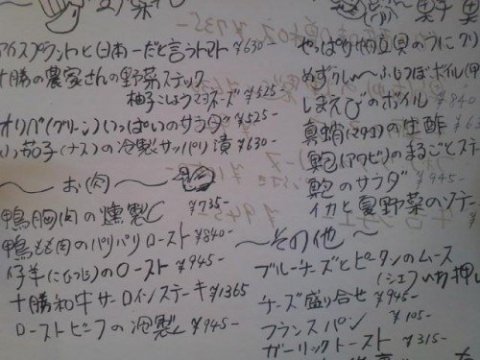 アイスプラントと日本一だと言うトマト ¥630-
十勝の農家さんの野菜スティック
柚子こしょうマヨネーズ ¥525-
オリバ(グリーン)いっぱいのサラダ ¥525-
茄子(ナス)の冷製サッパリ漬 ¥630-
〜お肉〜
鴨胸肉の燻製 ¥735-
鴨もも肉のパリパリロースト ¥840-
仔羊(ひつじ)のロースト ¥945-
十勝和牛サーロインステーキ ¥1365
ローストビーフの冷製 ¥945-
やっぱり
めずらしい〜ふじつぼボイル
しまえびのボイル ¥840
真蛸(マダコ)の生酢
鮑(アワビ)のまるごとステ
鮑のサラダ ¥945-
イカと夏野菜のソテー
〜その他〜
ブルーチーズとピータンのムース
(シェフいち押し
チーズ盛り合せ ¥945-
フランスパン ¥105-
ガーリックトースト ¥315-